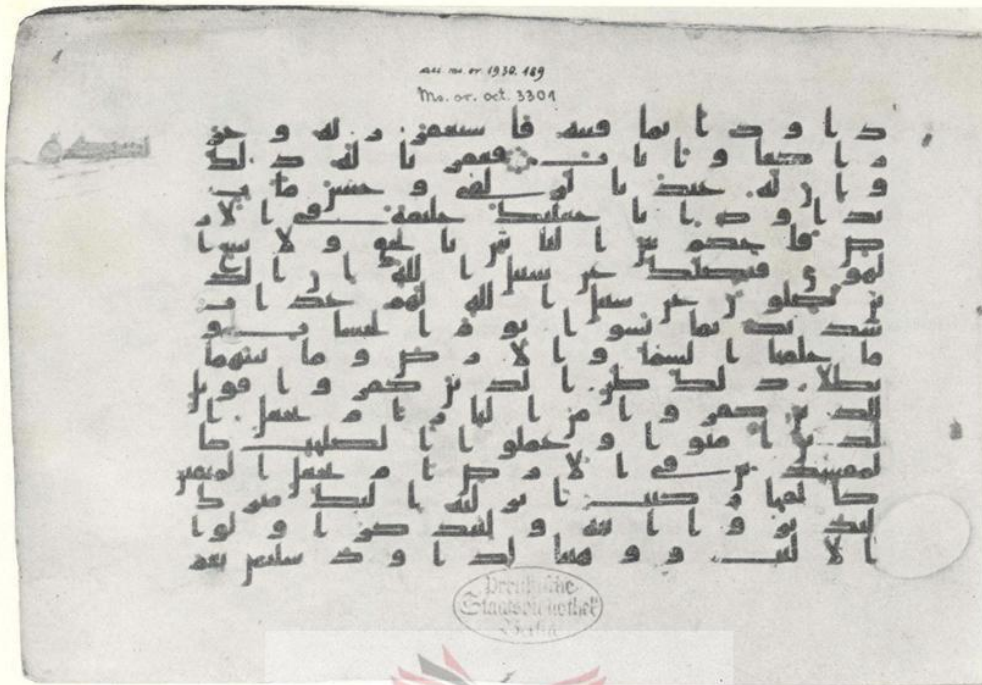 1
acc. ms. or. 1930. 189
Ms. or. oct. 3301
سجدة
داود انما فتنه فاستغفر ربه وخر
راكعا واناب فغفرنا له ذلك
وان له عندنا لزلفى وحسن ماب
يداود انا جعلنك خليفة في الار
ض فاحكم بين الناس بالحق ولا تتبع ا
لهوى فيضلك عن سبيل الله ان الذ
ين يضلون عن سبيل الله لهم عذاب
شديد بما نسوا يوم الحساب و
ما خلقنا السما والارض وما بينهما
بطلا ذلك ظن الذين كفروا فويل
للذين كفروا من النار ام نجعل ا
لذين امنوا وعملوا الصلحت كا
لمفسدين في الارض ام نجعل المتقين
كالفجار كتب انزلنه اليك مبرك
ليدبروا ايته وليتذكر اولوا
الالبب ووهبنا لداود سليمن نعم
Preußische
Staatsbibliothek
Berlin